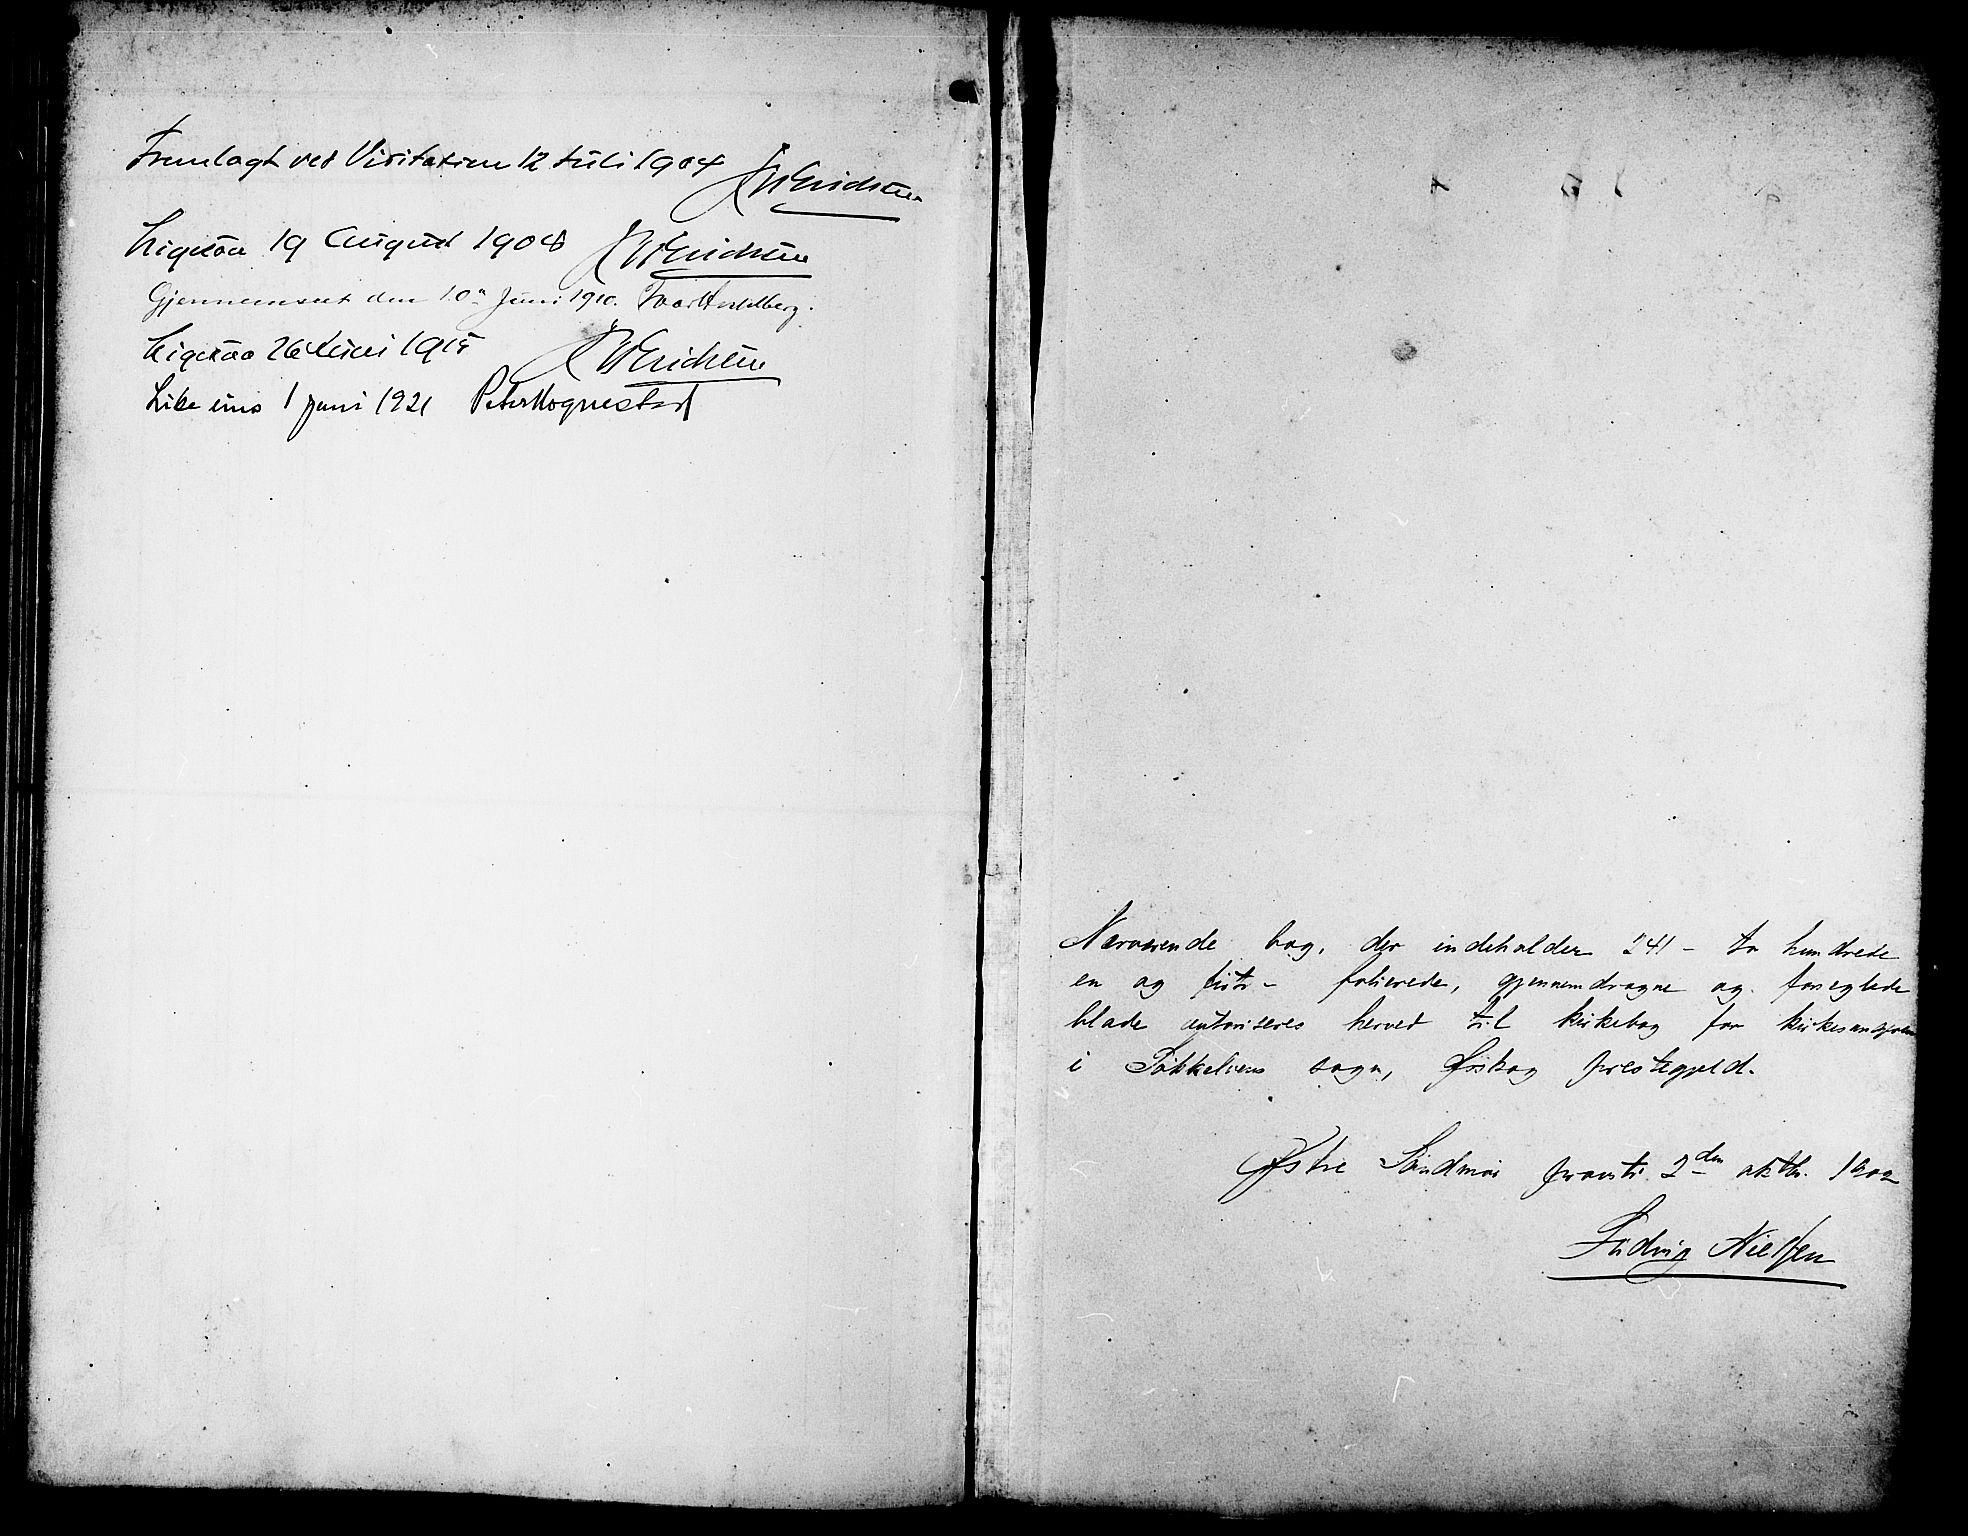 Fremlagt ved Visitation 12 Juli 1904 J W Erichsen
Ligesaa 19 August 1908 J W Erichsen
Gjennemseet den 10de Juni 1910.
Ligesaa 26 Juni 1915 J W Erichsen
Like eins 1 juni 1921 Peter Hognestad
Nærværende bog, der indeholder 241 - to hundrede
en og firti - folierede, gjennemdragne og forseglede
blade autoriseres herved til kirkebog for kirkesangeren
i Søkkelvens sogn, Ørskog prestegjeld.
Østre Søndmør provsti 2den oktbr. 1902
Ludvig Nielsen